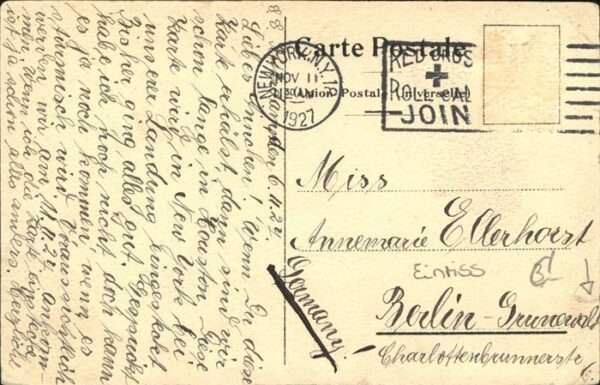 Carte Postale
(Union Postale Universelle)
NEW YORK, N.Y.
NOV 11
1927
RED CROSS
ROLL CALL
JOIN
Miss
Annemarie Ellerhorst
Einriss
Berlin-Grunewald
Charlottenbrunnerstr
6.
Germany!
den 6.11.27
Liebes Ännchen! Wenn Du diese
Karte erhälst, dann sind wir
schon lange in Houston. Diese
Karte wird in New York bei
unserer Landung eingesteckt
Bis her ging alles gut. Seekrank
habe ich noch nicht doch kann
es ja noch kommen, wenn es
stürmisch wird. Voraussichtlich
werden wir am 11.11.27 ankom
men. Wenn Du die Karte
ist ja schon alles anders. Herzlichst